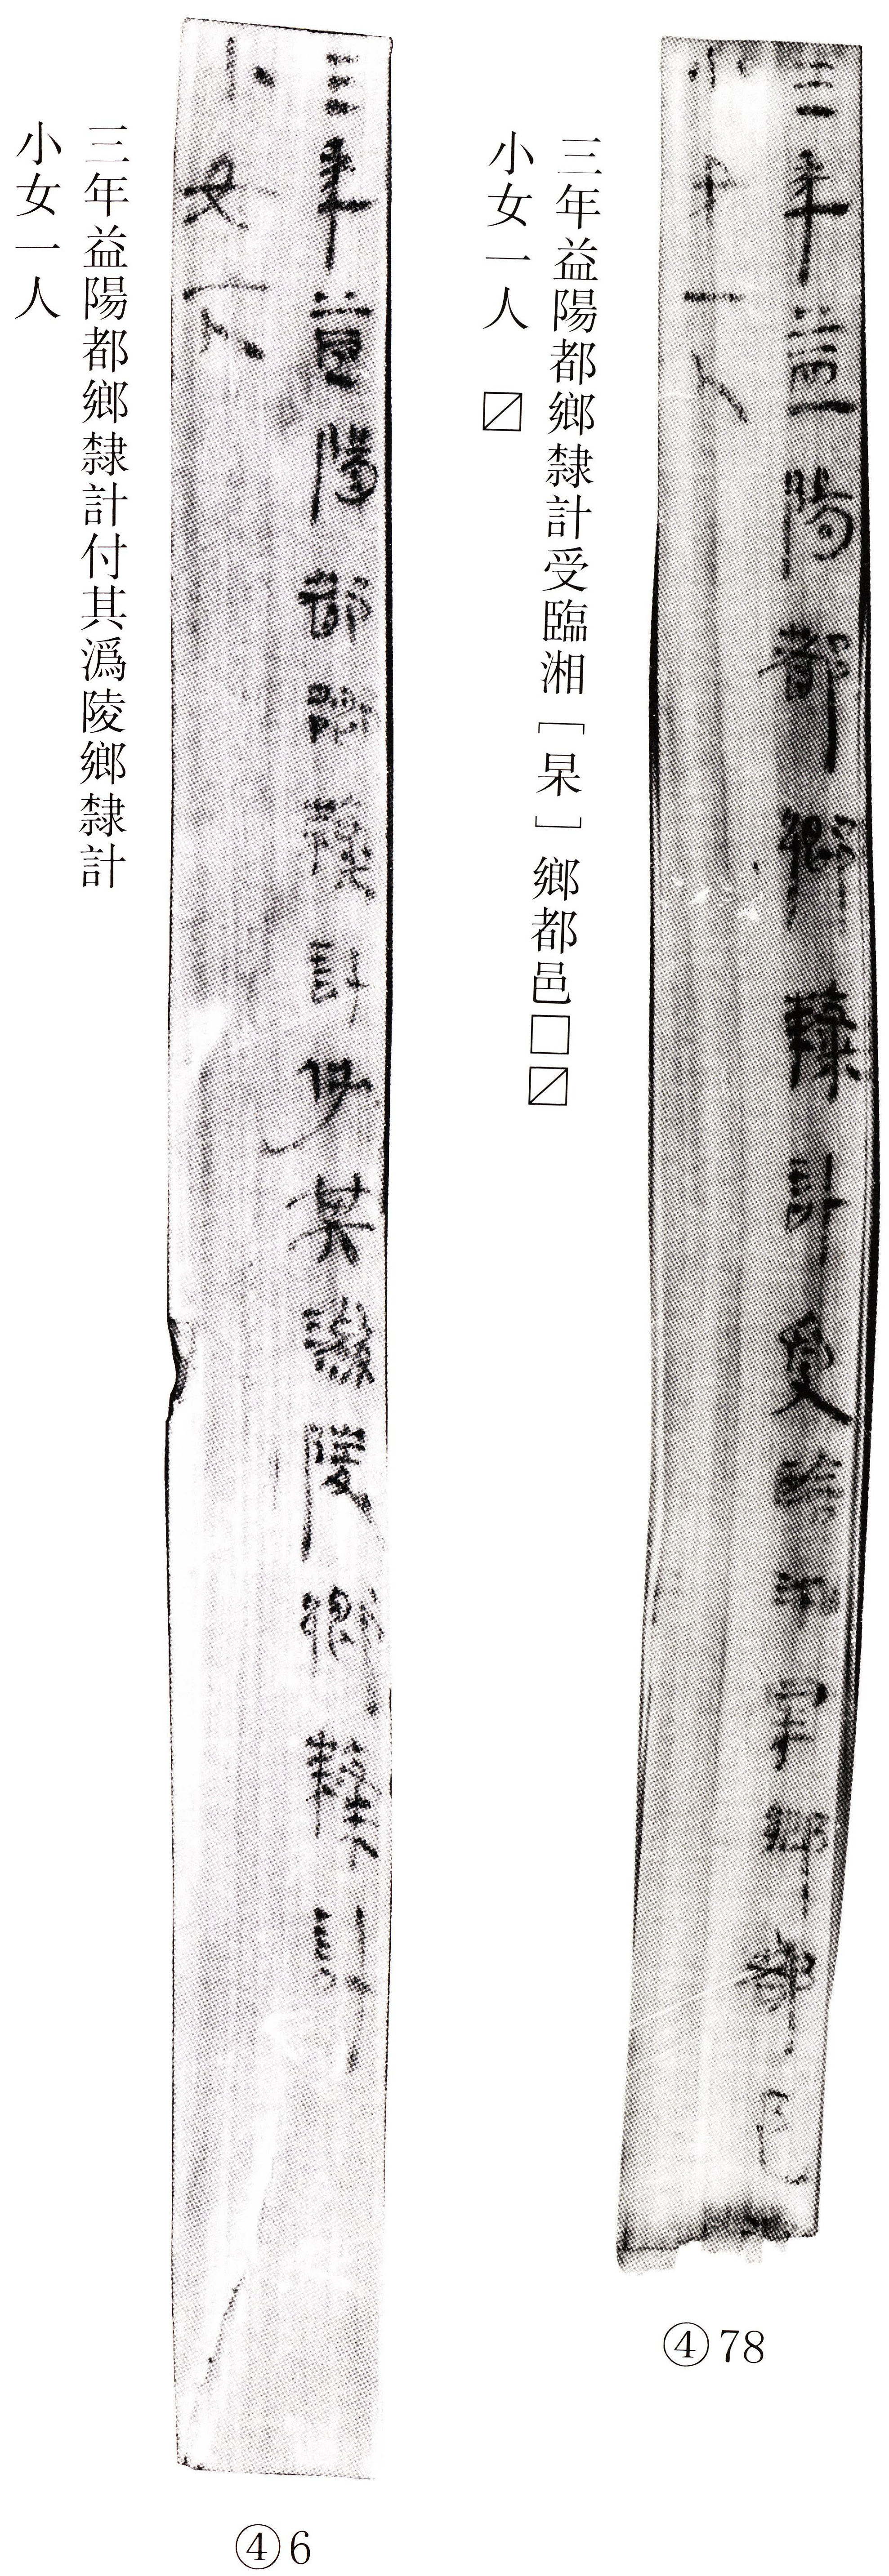 三年益陽都鄉隸計受臨湘［杲］鄉都邑□〼
小女一人 〼
④78
三年益陽都鄉隸計付其潙陵鄉隸計
小女一人
④6